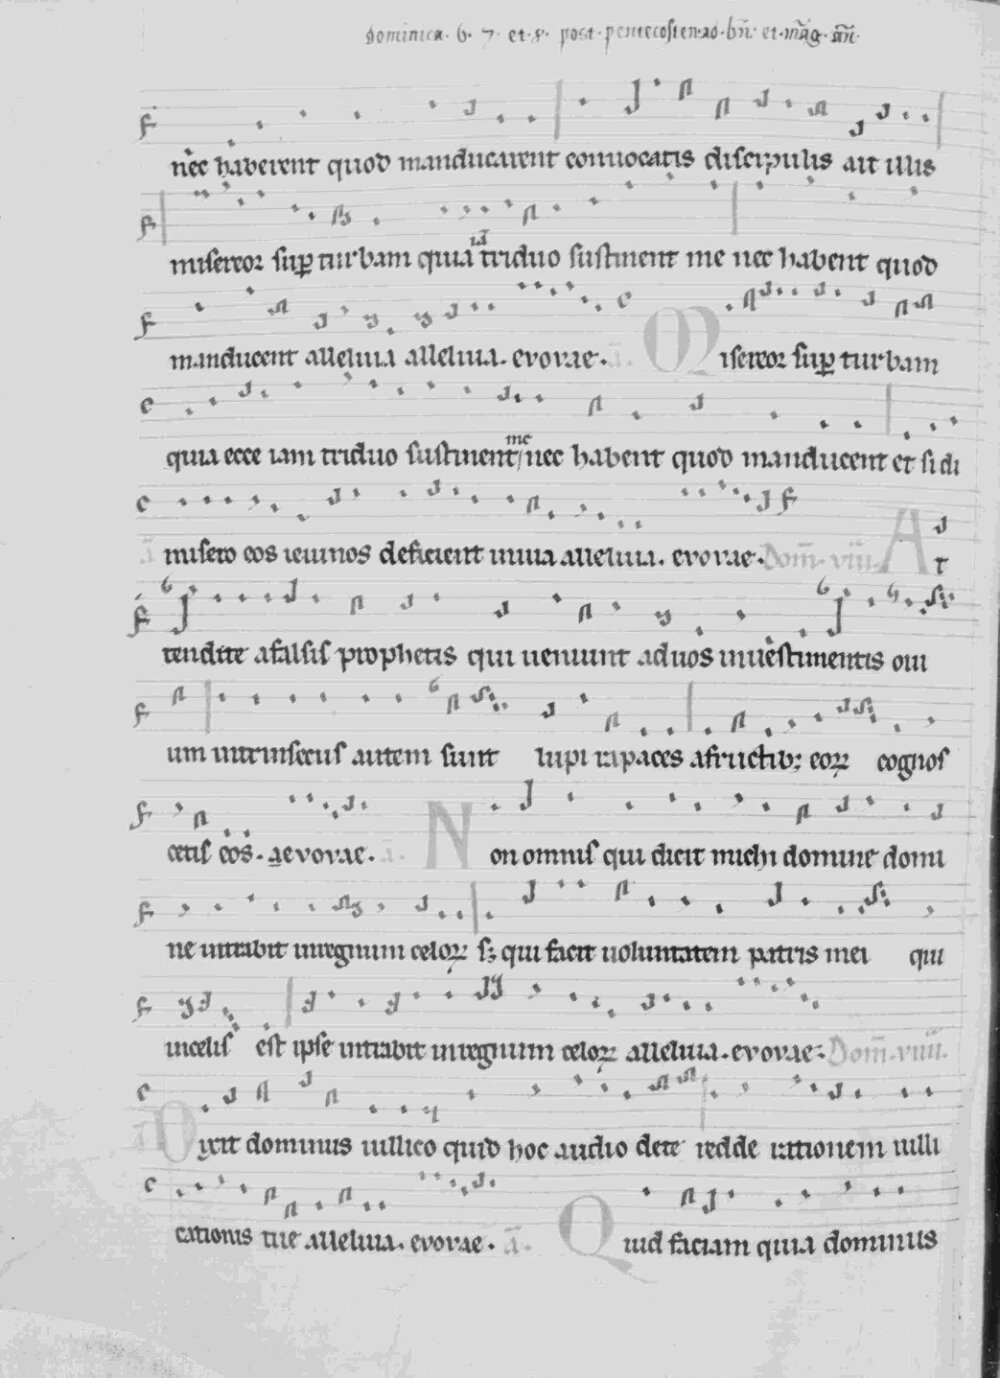 dominica · 6 · 7 · et · 8 · post · pentecosten · ad · bn̄ · et · māg · an̄ ·
nec haberent quod manducarent conuocatis discipulis ait illis
misereor sup turbam quia iā triduo sustinent me nec habent quod
manducent alleluia alleluia. evovae. ā. Misereor sup turbam
quia ecce iam triduo sustinent me nec habent quod manducent et si di
misero eos ieiunos deficient inuia alleluia. evovae. Dom̄. viii. At
tendite afalsis prophetis qui ueniunt aduos inuestimentis oui
um intrinsecus autem sunt lupi rapaces afructibꝫ eoꝝ cognos
cetis eos. aevovae. ā. Non omnis qui dicit michi domine domi
ne intrabit inregnum celoꝝ sꝫ qui facit uoluntatem patris mei qui
incelis est ipse intrabit inregnum celoꝝ alleluia. evovae. Dom̄. viiii.
ā Dixit dominus uillico quid hoc audio dete redde rationem uilli
cationis tue alleluia. evovae. ā. Quid faciam quia dominus